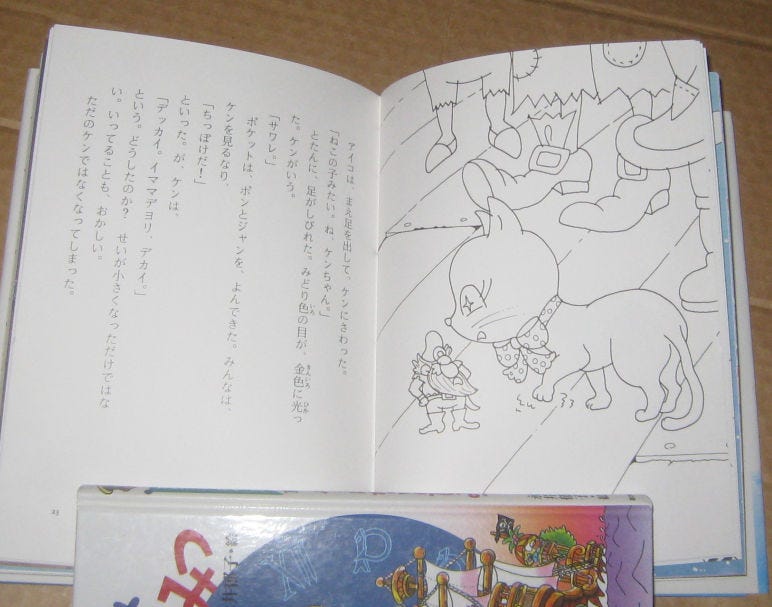 アイコは、まえ足を出して、ケンにさわった。
「ねこの子みたい。ね、ケンちゃん。」
とたんに、足がしびれた。みどり色の目が、金色に光っ
た。ケンがいう。
「サワレ。」
ポケットは、ポンとジャンを、よんできた。みんなは、
ケンを見るなり、
「ちっぽけだ！」
といった。が、ケンは、
「デッカイ。イママデヨリ、デカイ。」
という。どうしたのか？　せいが小さくなっただけではな
い。いってることも、おかしい。
ただのケンではなくなってしまった。
23
XII